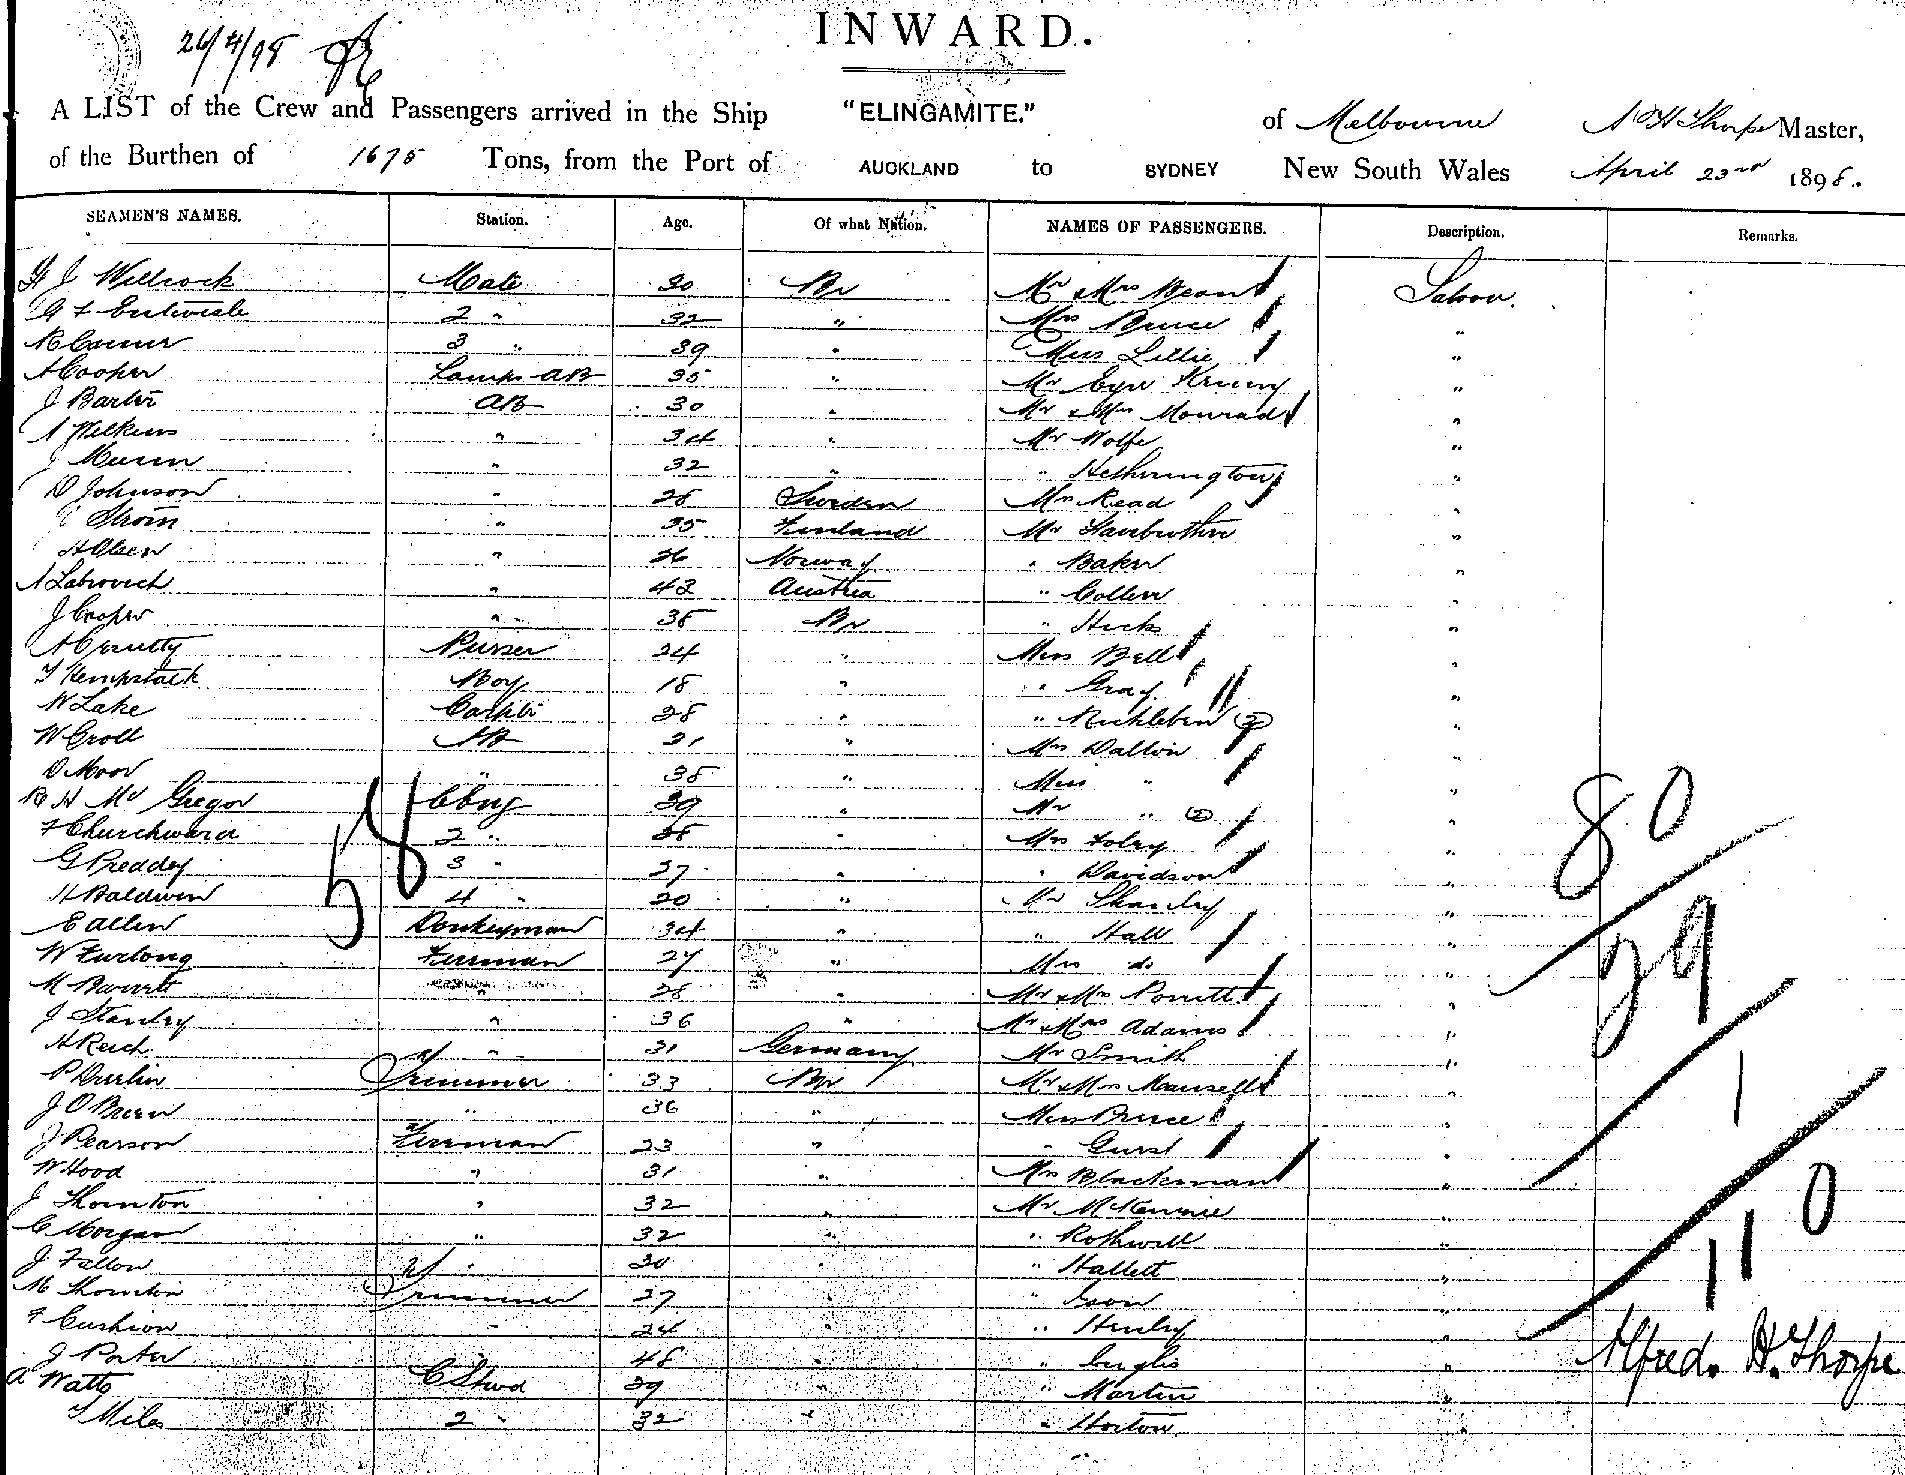 26/4/98
INWARD.
A LIST of the Crew and Passengers arrived in the Ship "ELINGAMITE." of Melbourne A H Thorpe Master,
of the Burthen of 1675 Tons, from the Port of AUCKLAND to SYDNEY New South Wales April 23rd 1898.
SEAMEN'S NAMES. Station. Age. Of what Nation. NAMES OF PASSENGERS. Description. Remarks.
H J Willcock Mate 30 Br Mr & Mrs Saloon.
G F Entwisle 2 " 32 " Mrs Bruce "
3 " 39 " Miss Lillie "
A Cooper Lamps AB 35 " Mr "
J Barter AB 30 " Mr & Mrs Monrad "
A Wilkins " 34 " Mr Wolfe "
J " 32 " " Hetherington "
D Johnson " 28 Sweden Mrs Read "
Strom " 35 Finland Mr Fairbrother "
H Olsen " 26 Norway " Baker "
A Labrovich " 43 Austria " Collen "
J Cooper " 38 Br " Hicks "
Purser 24 " Miss Bell "
Kempstack Boy 18 " " Gray "
W Lake 28 " " (2) "
W Croll AB 21 " Mrs Dalton "
D Moor " 38 " Miss " "
R H McGregor C Eng 39 " Mr " (2) "
F Churchward 2 " 28 " Mrs Foley "
G Preddey 3 " 27 " " Davidson "
H Baldwin 4 " 20 " Mr "
E Allen Donkeyman 34 " " Hall "
W Furlong Fireman 27 " Mrs do "
M Barrett " 28 " Mr & Mrs Porritt "
J Stanley " 36 " Mr & Mrs Adams "
A Reich " 31 Germany Mr Smith "
P Durlin Trimmer 33 Br Mr & Mrs Mansell "
J O'Brien " 36 " Miss Bruce "
J Pearson Fireman 23 " " "
W Hood " 31 " Mrs Blackman "
J Thornton " 32 " Mr McKenzie "
C Morgan " 32 " " Rothwell "
J Fallon " 30 " Hallett "
M Thornton Trimmer 27 " " "
F Cushion " 24 " " Henley "
J Porter 48 " " Inglis "
A Watts C Stwd 29 " " Martin "
T Miles 2 " 32 " " Horton "
"
58
80
29
1
110
Alfred. H. Thorpe